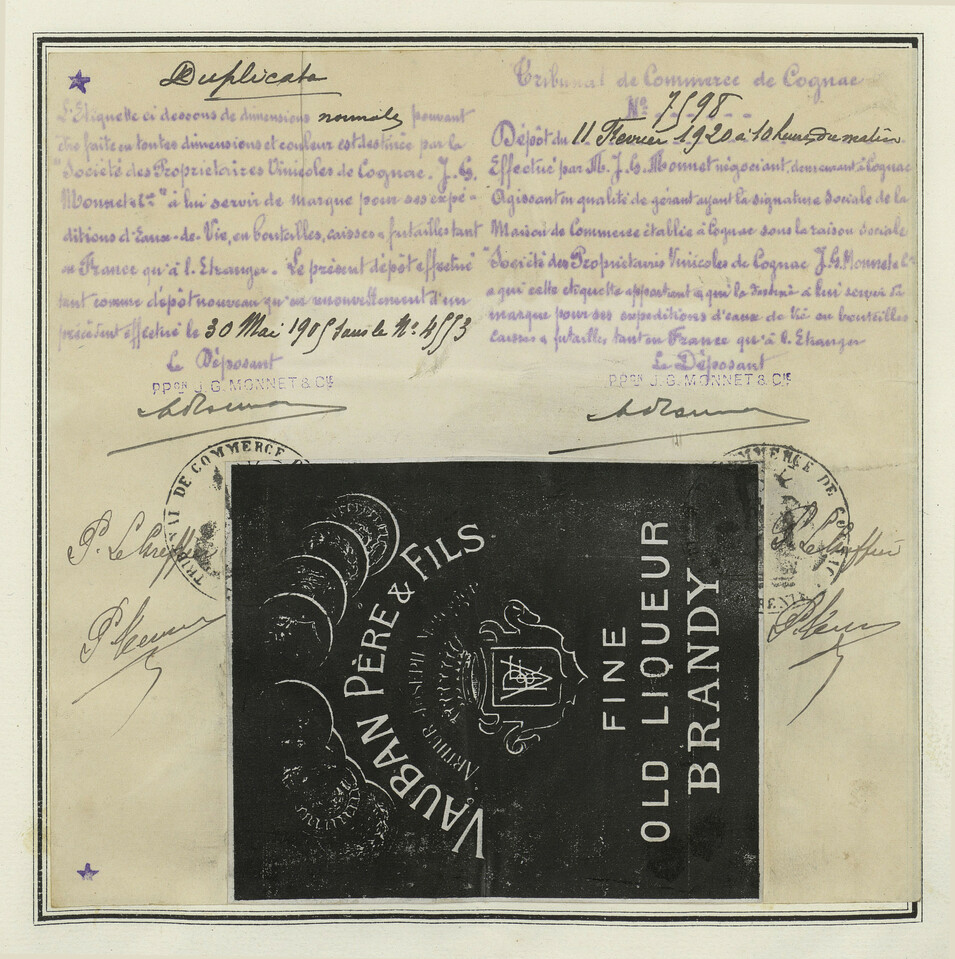 Duplicata
L'Etiquette ci dessous de dimensions normales pouvant
être faite en toutes dimensions et couleur est destinée par la
"Société des Propriétaires Vinicoles de Cognac. J. G.
Monnet & Cie" à lui servir de marque pour ses expé-
ditions d'Eaux-de-Vie, en bouteilles, caisses & futailles tant
en France qu'à l'Etranger. Le présent dépôt effectué
tant comme dépôt nouveau qu'en renouvellement d'un
précédent effectué le 30 Mai 1905 sous le No. 4553
Le Déposant
PPON J. G. MONNET & CIE
Tribunal de Commerce de Cognac
No 7598
Dépôt du 11 Fevrier 1920 à 10 heures du matin
Effectué par M. J. G. Monnet négociant, demeurant à Cognac
Agissant en qualité de gérant ayant la signature sociale de la
Maison de Commerce établie à Cognac sous la raison sociale
"Société des Propriétairis Vinicoles de Cognac J. G. Monnet & Cie
à qui cette etiquette appartient & qui la destine à lui servir de
marque pour ses expeditions d'eaux de vie en bouteilles
caisses & futailles tant en France qu'à l'Etranger
Le Déposant
PPON J. G. MONNET & CIE
TRIBUNAL DE COMMERCE
P. Le Greffier
COMMERCE DE
P. Le Greffier
VAUBAN PÈRE & FILS
ARTHUR JOSEPH
FINE
OLD LIQUEUR
BRANDY